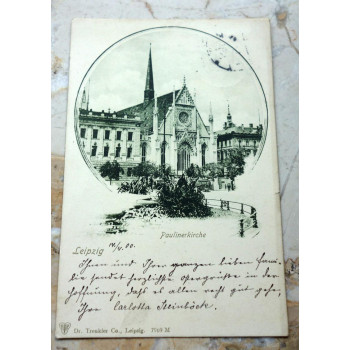 Paulinerkirche
Leipzig 14/4.00.
Ihnen und Ihrer ganzen lieben Fami-
lie sendet herzlichste Ostergrüsse in der
Hoffnung, daß es allen recht gut geht,
Ihre Carlotta Steinböck.
Dr. Trenkler Co., Leipzig. 7049 M